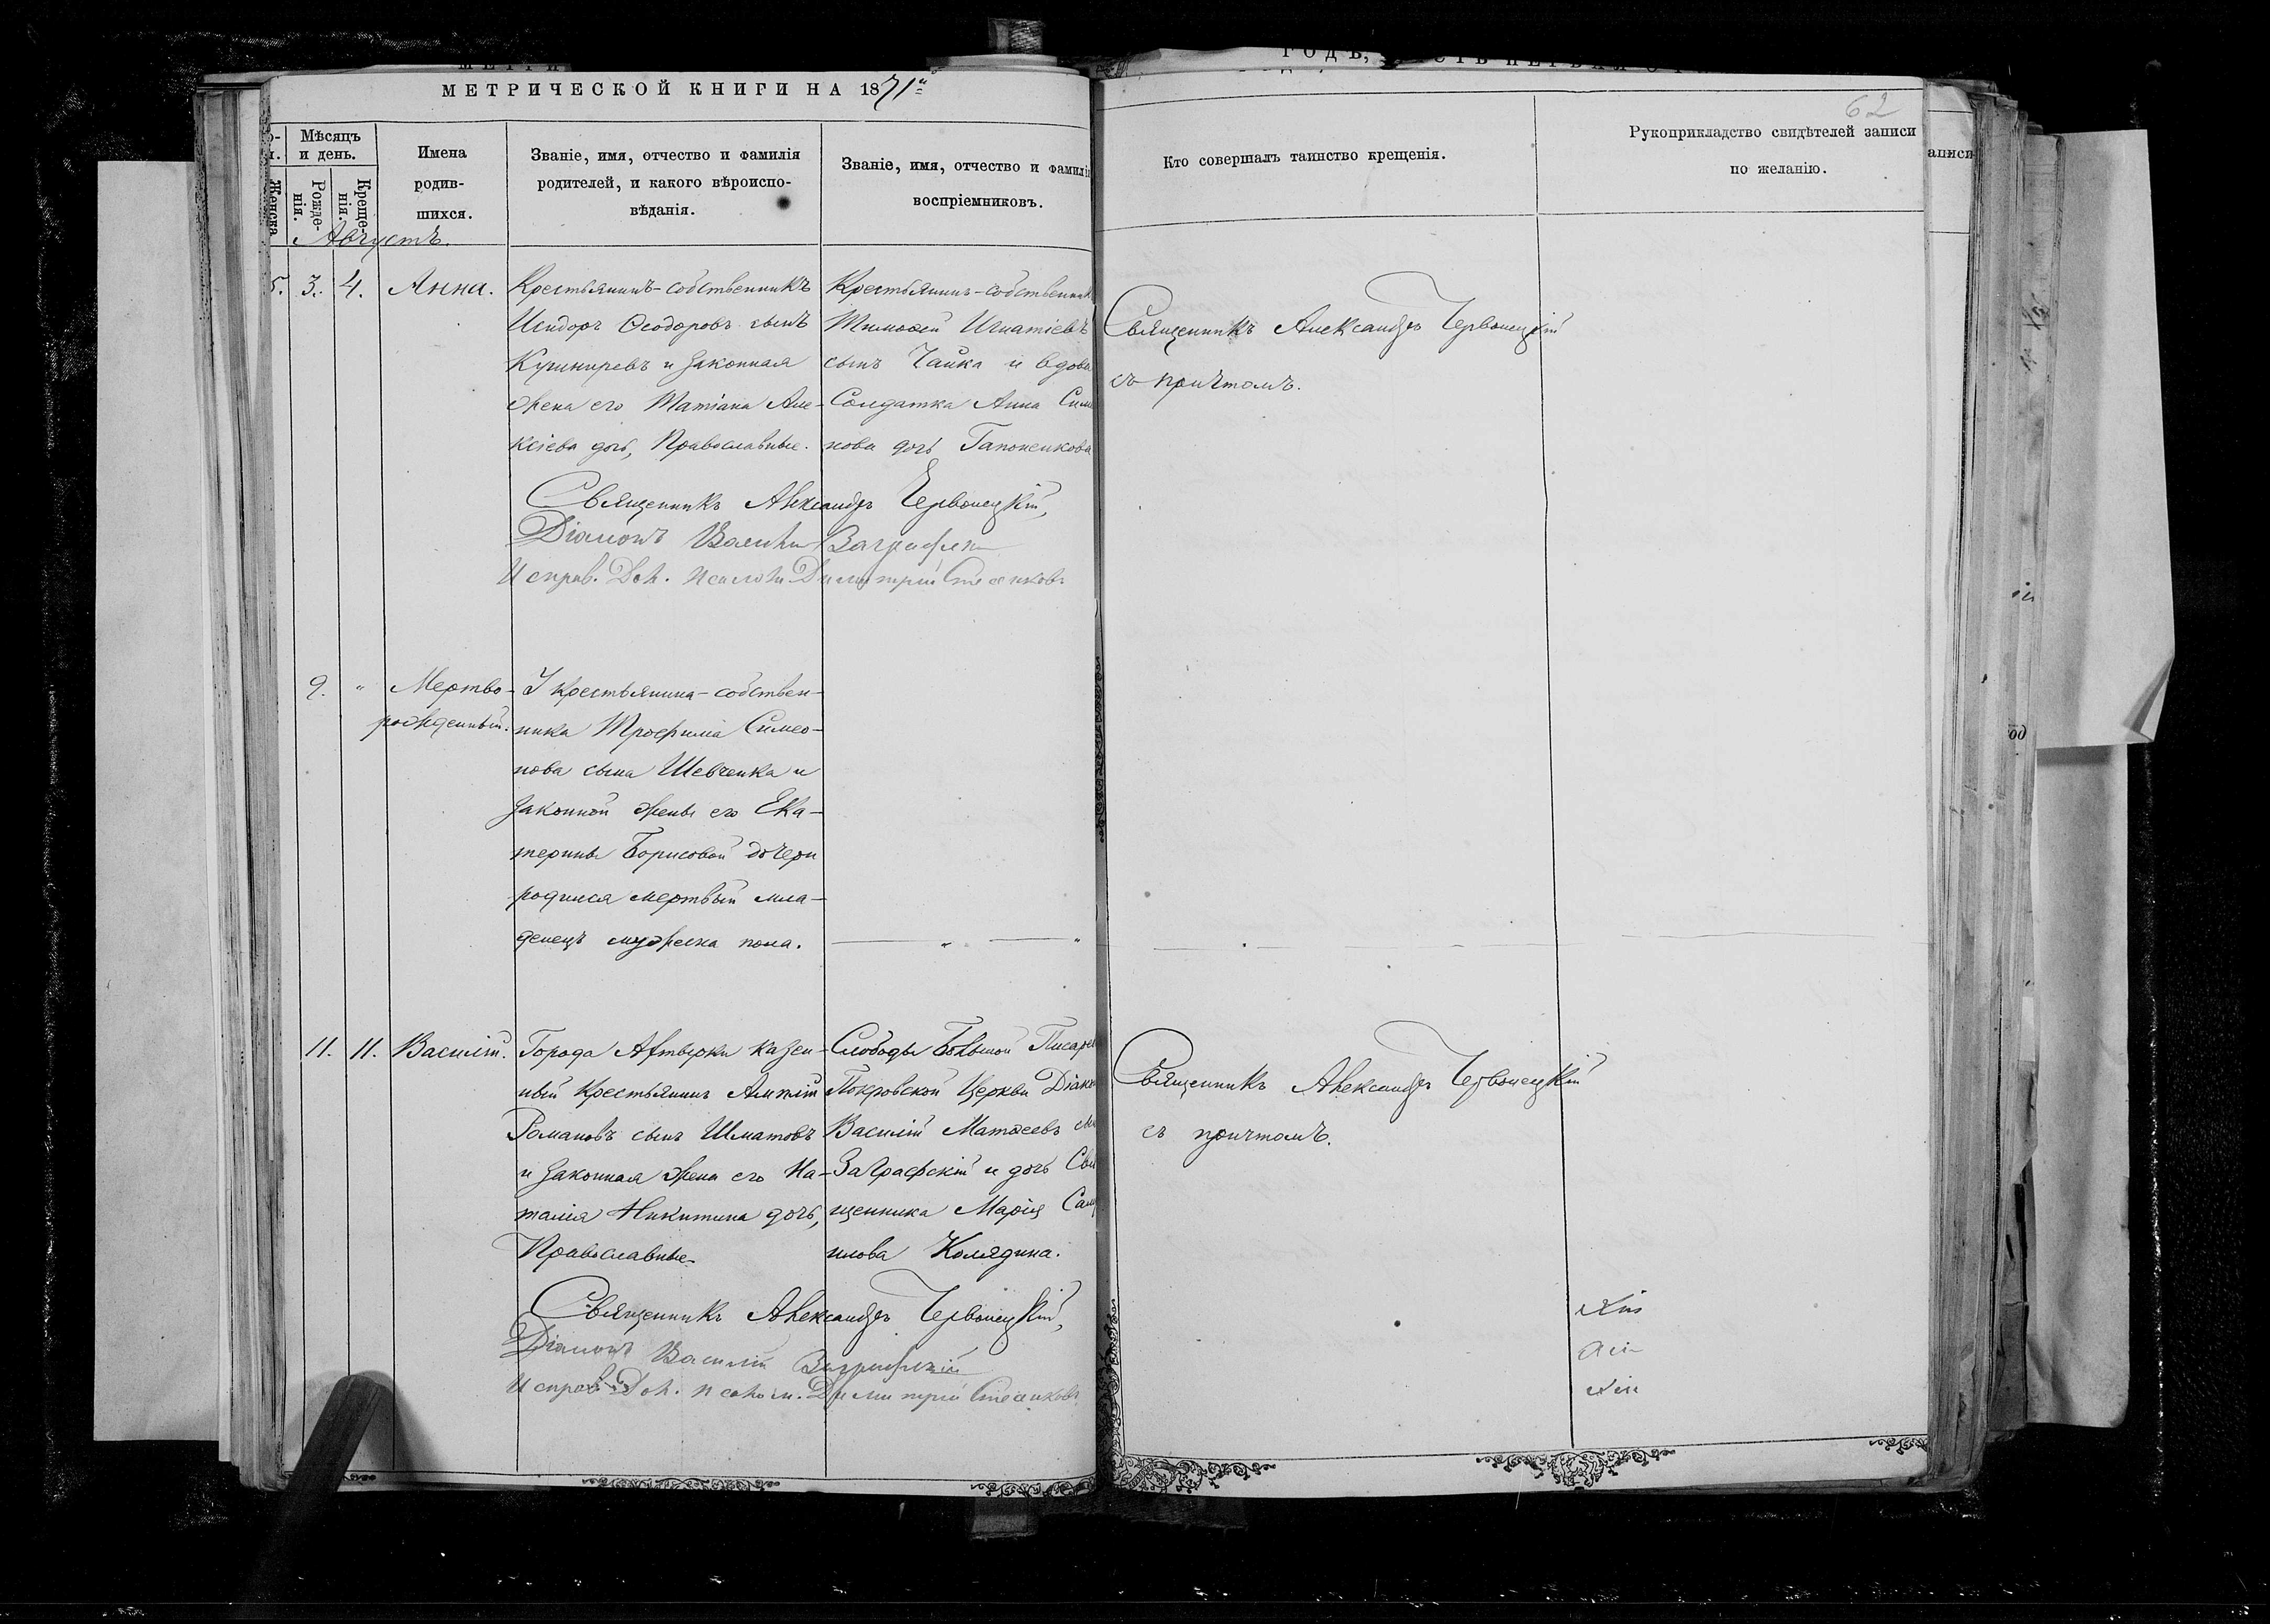 МЕТРИЧЕСКОЙ КНИГИ НА 1871й
62
Мѣсяцъ и день.
Женска
Рожденія.
Крещенія.
Имена родившихся.
Званіе, имя, отчество и фамилія родителей, и какого вѣроисповѣданія.
Званіе, имя, отчество и фамилія
воспріемниковъ.
Кто совершалъ таинство крещенія.
Рукоприкладство свидѣтелей записи
по желанію.
Августъ.
5. 3. 4. Анна.
Крестьянинъ-собственникъ
Исидоръ Ѳеодоровъ сынъ
Кушниревъ и законная
жена его Татіана Але-
ксіева дочь, Православные.
Крестьянинъ-собственникъ
Тимоѳей Игнатіевъ
сынъ Чайка и вдова
Солдатка Анна Симе
нова дочь Гапоненкова
Священникъ Александръ Червонецкій
съ причтомъ.
Священникъ Александръ Червонецкій,
Діаконъ Василій Заграфскій
Исправ. Дол. Псалом. Димитрій
9. „ Мертво-
рожденный.
У крестьянина-собствен-
ника Трофима Симео-
нова сына Шевченка и
законной жены его Ека-
терины Борисовой дочери
родился мертвый мла-
денецъ мужеска пола.
11. 11. Василій.
Города Ахтырки казен-
ный Крестьянинъ Антіой
Романовъ сынъ Шматовъ
и законная жена его На-
талія Никитина дочь,
Православные.
Слободы Большой Писарев
Покровской Церкви Діакон
Василій Матѳеевъ сын
Заграфскій и дочь Свя
щенника Марія Сам
илова Колядина.
Священникъ Александръ Червонецкій
съ причтомъ.
Священникъ Александръ Червонецкій,
Діаконъ Василій Заграфскій
Исправ. Дол. Псалом. Димитрій